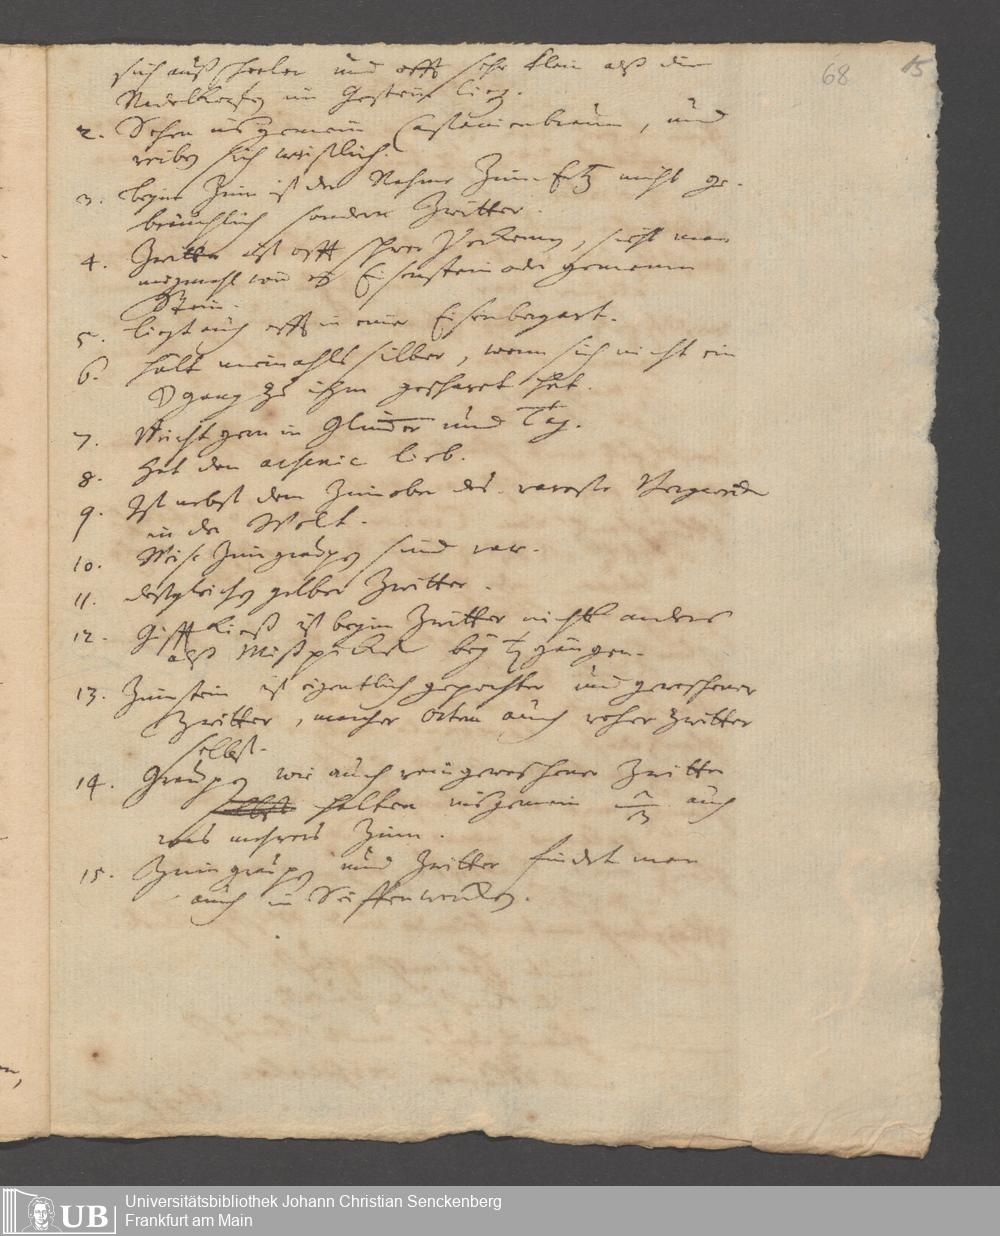 68 15
sich auß und offt sehr klein alß die
Nadelköpfe im Gestein lieg.
2. Sehen ins gemein Castanienbraun, und
reiben sich weißlich.
3. beym Zinn ist der Nahme Zinn Ertz nicht ge-
bräuchlich sondern Zwitter.
4. Zwitter ist offt schwer zu, sieht man
wie Eisenstein oder gemeinem
Stein.
5. liegt auch offt in einer Eisenbergart.
6. hält niemahls silber, wenn sich nicht ein
gang zu ihm gescharet hat.
7. Bricht gern in Glimmer und
8. Hat den arsenic lieb.
9. Ist nebst dem Zinnober das rareste
in der Welt.
10. Weise Zinngraupen sind rar.
11. desgleichen gelber Zwitter.
12. Gifft Kieß ist beym Zwitter nichts anders
alß Mißpickel bey gängen.
13. Zinnstein ist eigentlich gepochter und gewaschener
Zwitter, mancher Orten auch roher Zwitter
selbst.
14. Graupen wie auch rein gewaschener Zwitter
halten ins gemein auch
was mehrers Zinn.
15. Zinngraupen und Zwitter findet man
auch in Seiffenwercken.
UB
Universitätsbibliothek Johann Christian Senckenberg
Frankfurt am Main